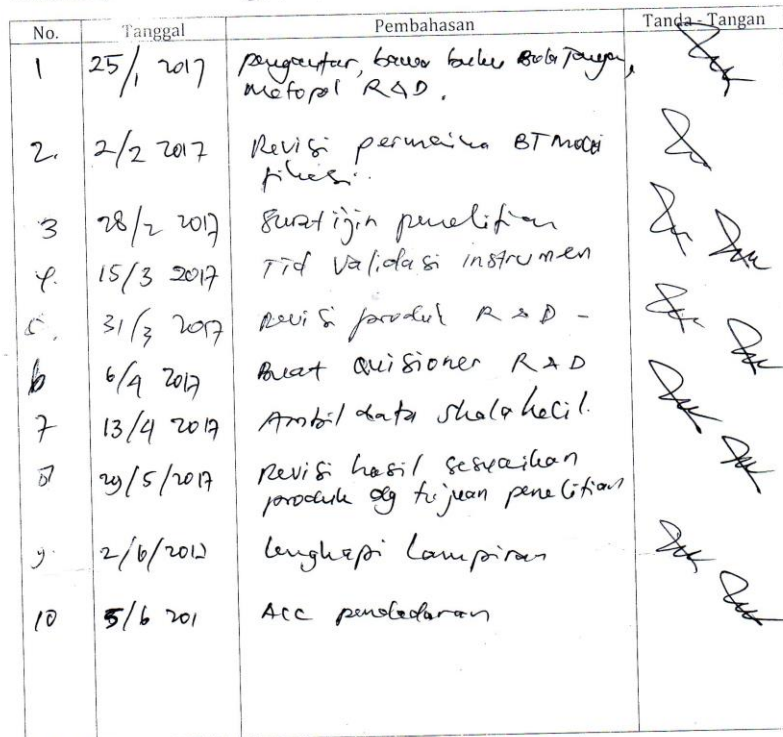 No. Tanggal Pembahasan Tanda - Tangan
1 25/1 2017 pengantar, bawa buku Bola Tangan,
metopel R&D.
2. 2/2 2017 Revisi permainan BT Modi
fikasi..
3 28/2 2017 Surat ijin penelitian
4. 15/3 2017 Ttd Validasi instrumen
5. 31/3 2017 Revisi produk R&D -
6 6/4 2017 Buat Quisioner R&D
7 13/4 2017 Ambil data skala kecil.
8 29/5/2017 Revisi hasil sesuaikan
produk dg tujuan penelitian
9. 2/6/2017 lengkapi Lampiran
10 5/6 201 ACC pendadaran